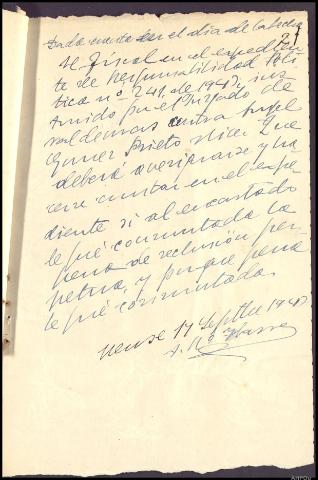 Dada cuenta en el día de la fecha
El Fiscal en el expedien
te de Responsabilidad Polí
tica nº 241 de 1941, ins
truido por el Juzgado de
Valdeorras contra Angel
Gomez Prieto dice: Que
deberá averiguarse y ha
cerse constar en el expe
diente si al encartado
le fué conmutada la
pena de reclusión per
petua, y por que pena
le fué conmutada.
Orense 17 Septbre 1941